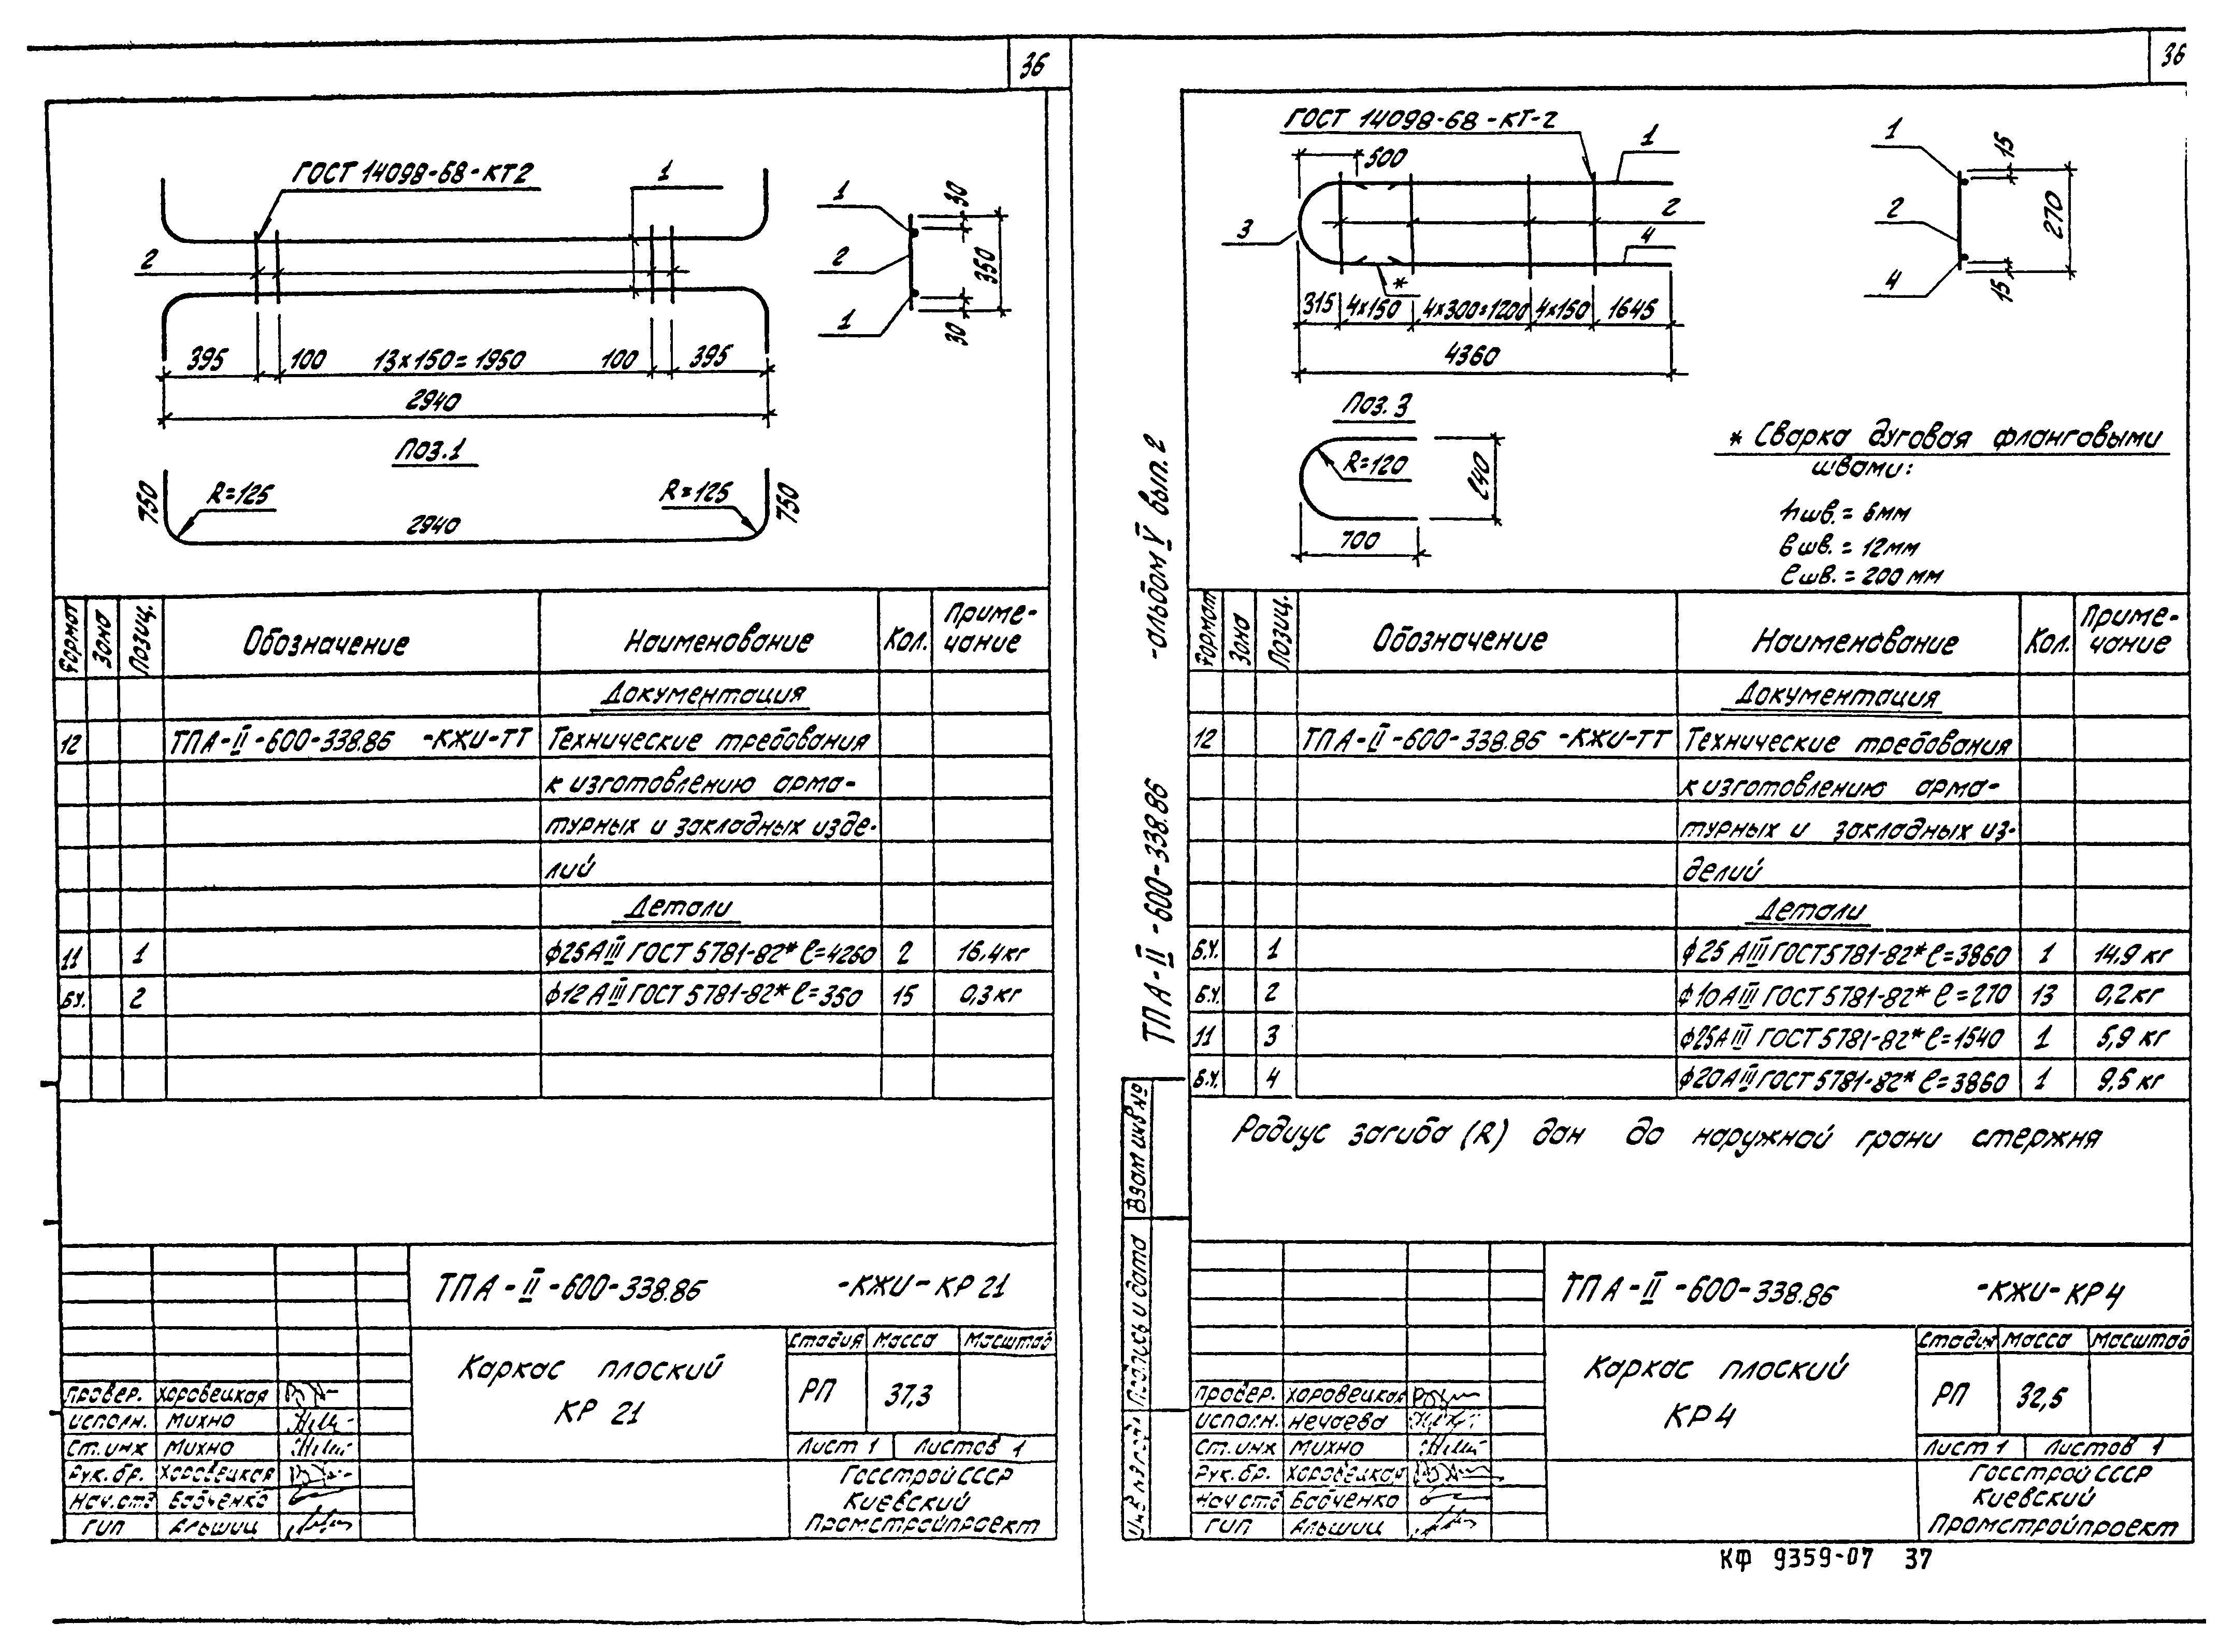 36
ГОСТ 14098-68-КТ2
1
2
395
100
13×150=1950
100
395
2940
1
2
1
30
350
30
Поз.1
750
R=125
2940
R=125
750
Формат
Зона
Позиц.
Обозначение
Наименование
Кол.
Приме-
чание
Документация
12 ТПА-II-600-338.86 -КЖИ-ТТ Технические требования
к изготовлению арма-
турных и закладных изде-
лий
Детали
11 1 ф25АIII ГОСТ 5781-82* ℓ=4260 2 16,4кг
Б.Ч. 2 ф12АIII ГОСТ 5781-82* ℓ=350 15 0,3кг
ТПА-II-600-338.86 -КЖИ-КР 21
Каркас плоский
КР 21
Стадия Масса Масштаб
РП 37,3
Лист 1 Листов 1
Госстрой СССР
Киевский
Промстройпроект
Провер. Хоровецкая
Исполн. Михно
Ст.инж Михно
Рук.бр. Хоровецкая
Нач.отд Бабченко
ГИП Альшиц
36
ГОСТ 14098-68-КТ-2
500
1
3
2
4
*
315
4×150
4×300=1200
4×150
1645
4360
1
2
4
15
270
15
Поз. 3
R=120
240
700
* Сварка дуговая фланговыми
швами:
hшв.= 6мм
bшв.= 12мм
ℓшв.= 200 мм
ТПА-II-600-338.86 -альбом V вып.2
Формат
Зона
Позиц.
Обозначение
Наименование
Кол.
Приме-
чание
Документация
12 ТПА-II-600-338.86 -КЖИ-ТТ Технические требования
к изготовлению арма-
турных и закладных из-
делий
Детали
Б.Ч. 1 ф25 АIII ГОСТ 5781-82* ℓ=3860 1 14,9 кг
Б.Ч. 2 ф10АIII ГОСТ 5781-82* ℓ=270 13 0,2кг
11 3 ф25АIII ГОСТ 5781-82* ℓ=1540 1 5,9 кг
Б.Ч. 4 ф20АIII ГОСТ 5781-82* ℓ=3860 1 9,5 кг
Радиус загиба (R) дан до наружной грани стержня
Взам инв №
Подпись и дата
ТПА-II-600-338.86 -КЖИ-КР4
Каркас плоский
КР4
Стадия Масса Масштаб
РП 32,5
Лист 1 Листов 1
Госстрой СССР
Киевский
Промстройпроект
Провер. Хоровецкая
Исполн. Нечаева
Ст.инж Михно
Рук.бр. Хоровецкая
Нач отд Бабченко
ГИП Альшиц
КФ 9359-07 37